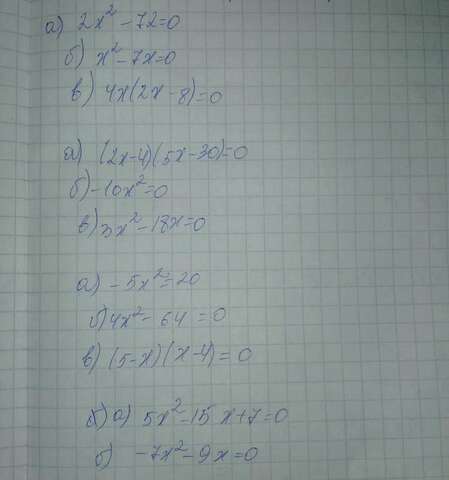 а) 2x² - 72=0
б) x² - 7x=0
в) 4x(2x - 8)=0
а) (2x-4)(5x-30)=0
б) -10x²=0
в) 3x² - 18x=0
а) - 5x²=20
б) 4x² - 64 =0
в) (5-x)(x-4)=0
а) 5x² - 15x+7=0
б) -7x² - 9x=0